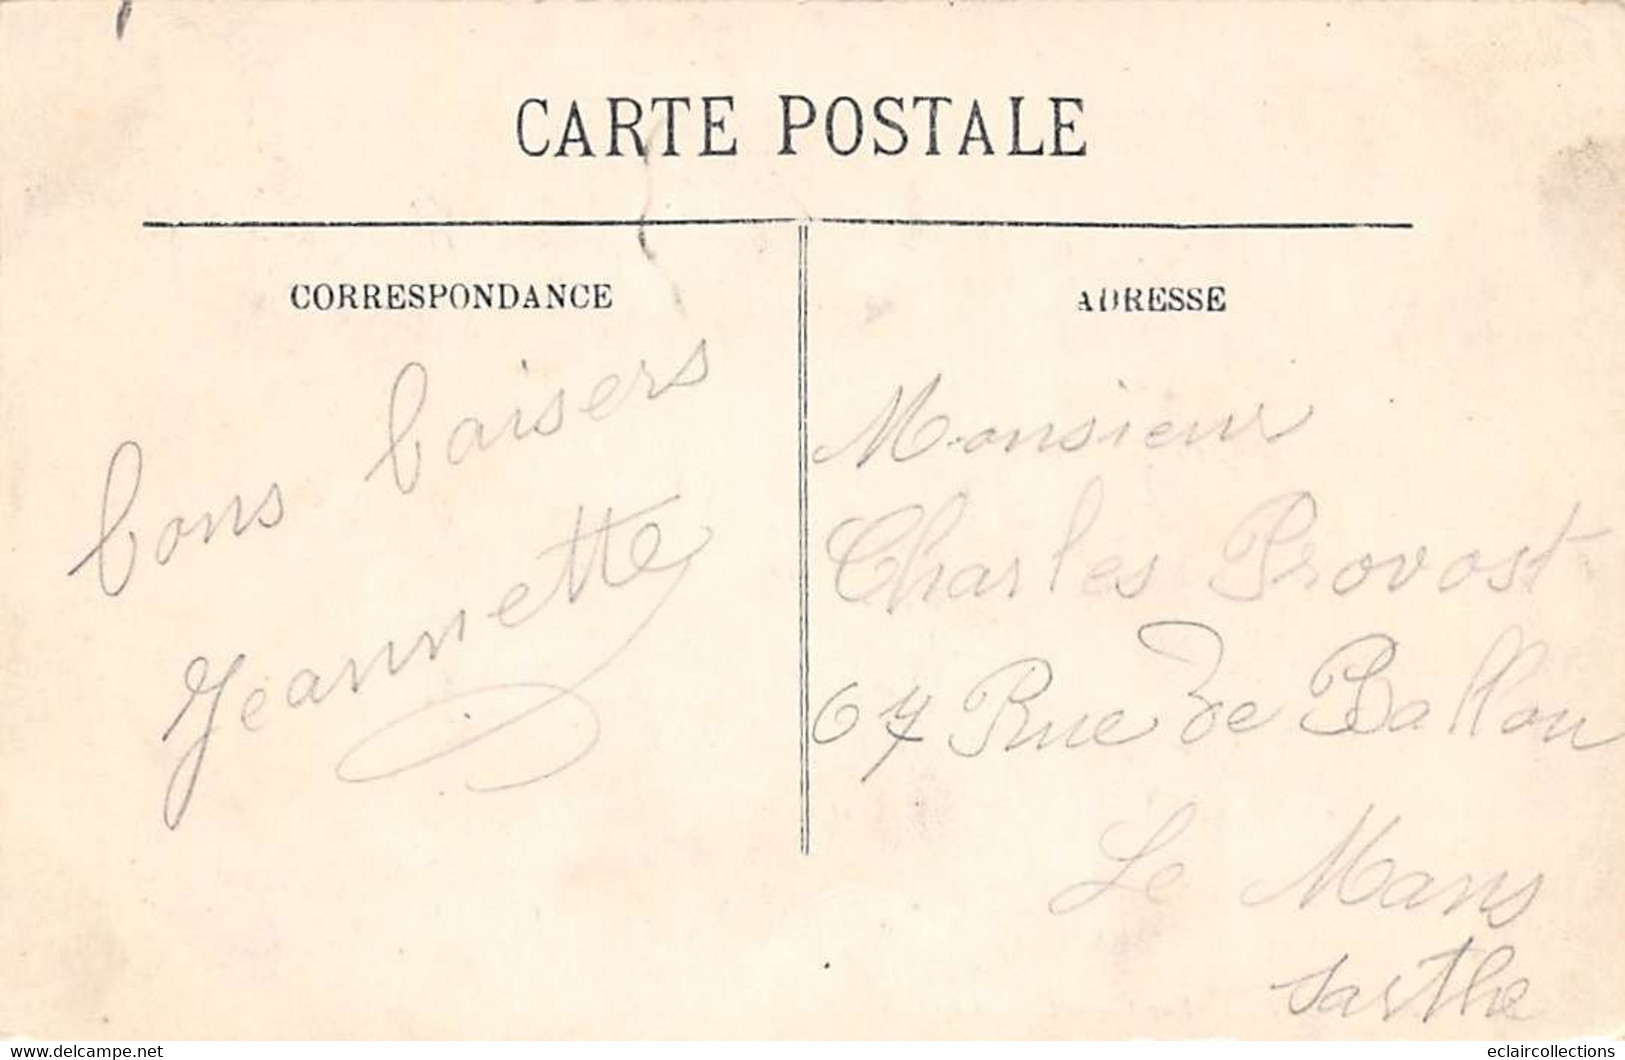 CARTE POSTALE
CORRESPONDANCE
bons baisers
Jeannette
ADRESSE
Monsieur
Charles Provost
67 Rue de Ballon
Le Mans
Sarthe
www.delcampe.net
eclaircollections